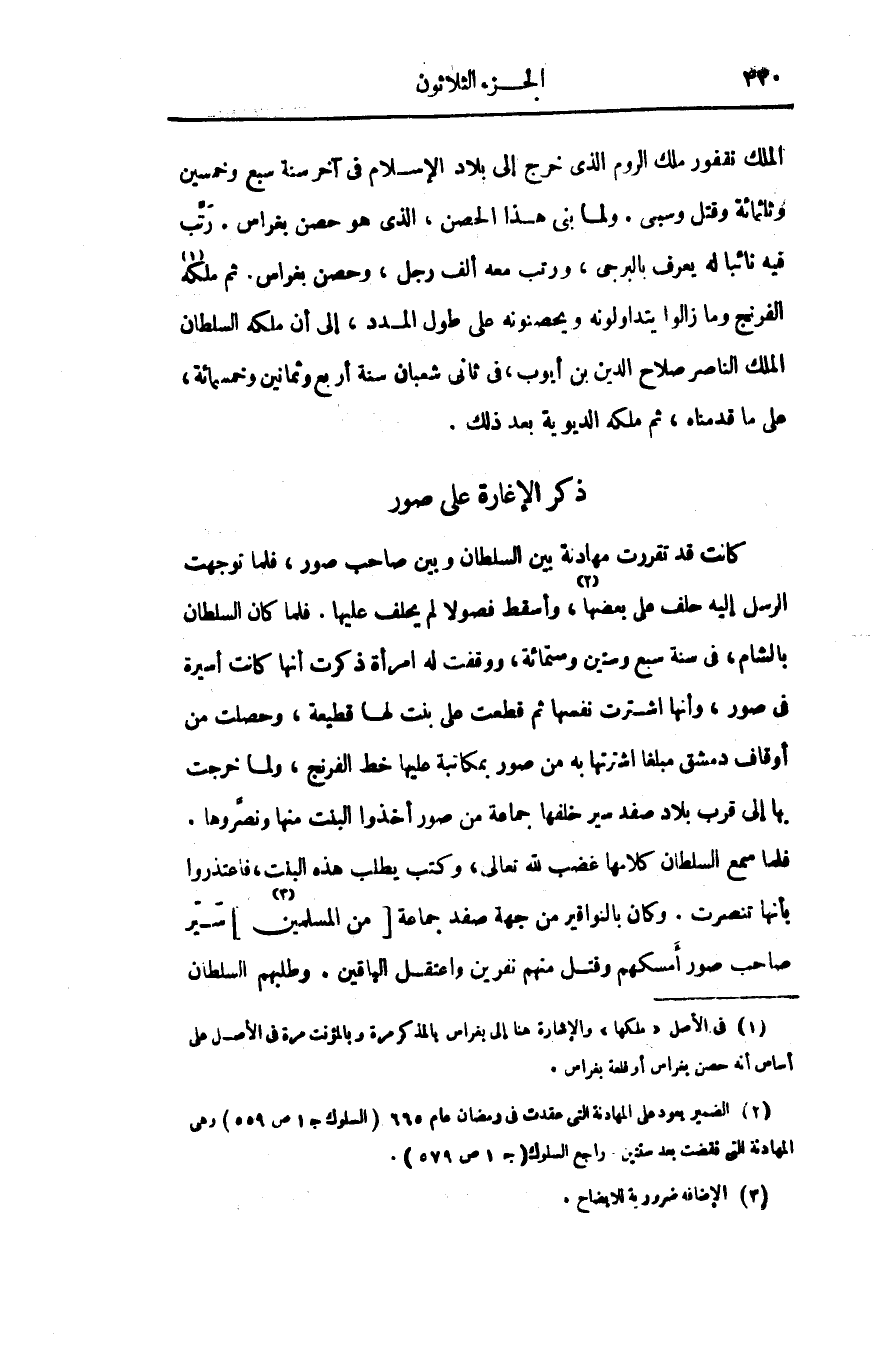 ٣٣٠ الجزء الثلاثون
الملك نقفور ملك الروم الذى خرج إلى بلاد الإسلام فى آخر سنة سبع وخمسين
وثلثمائة وقتل وسبى . ولما بنى هذا الحصن ، الذى هو حصن بغراس . رَتَّب
فيه نائبا له يعرف بالبرجى ، ورتب معه ألف رجل ، وحصن بغراس. ثم ملكه (١)
الفرنج وما زالوا يتداولونه ويحصنونه على طول المدد ، إلى أن ملكه السلطان
الملك الناصر صلاح الدين بن أيوب ، فى ثانى شعبان سنة أربع وثمانين وخمسمائة ،
على ما قدمناه ، ثم ملكه الديوية بعد ذلك .
ذكر الإغارة على صور
كانت قد تقررت مهادنة بين السلطان وبين صاحب صور ، فلما توجهت
الرسل إليه حلف على بعضها (٢) ، وأسقط فصولا لم يحلف عليها . فلما كان السلطان
بالشام ، فى سنة سبع وستين وستمائة ، ووقفت له امرأة ذكرت أنها كانت أسيرة
فى صور ، وأنها اشترت نفسها ثم قطعت على بنت لها قطيعة ، وحصلت من
أوقاف دمشق مبلغا اشترتها به من صور بمكاتبة عليها خط الفرنج ، ولما خرجت
بها إلى قرب بلاد صفد سير خلفها جماعة من صور أخذوا البنت منها ونصَّروها .
فلما سمع السلطان كلامها غضب لله تعالى ، وكتب يطلب هذه البنت ، فاعتذروا
بأنها تنصرت . وكان بالنواقير من جهة صفد جماعة [ من المسلمين (٣) ] سَيَّر
صاحب صور أَمسكهم وقتل منهم نفرين واعتقل الباقين . وطلبهم السلطان
(١) فى الأصل « ملكها » والإشارة هنا إلى بغراس بالمذكر مرة وبالمؤنث مرة فى الأصل على
أساس أنه حصن بغراس أو قلعة بغراس .
(٢) الضمير يعود على المهادنة التى عقدت فى رمضان عام ٦٦٥ (السلوك جـ ١ ص ٥٥٩) وهى
المهادنة التى نقضت بعد سنتين . راجع السلوك (جـ ١ ص ٥٧٩) .
(٣) الإضافه ضرورية للايضاح .